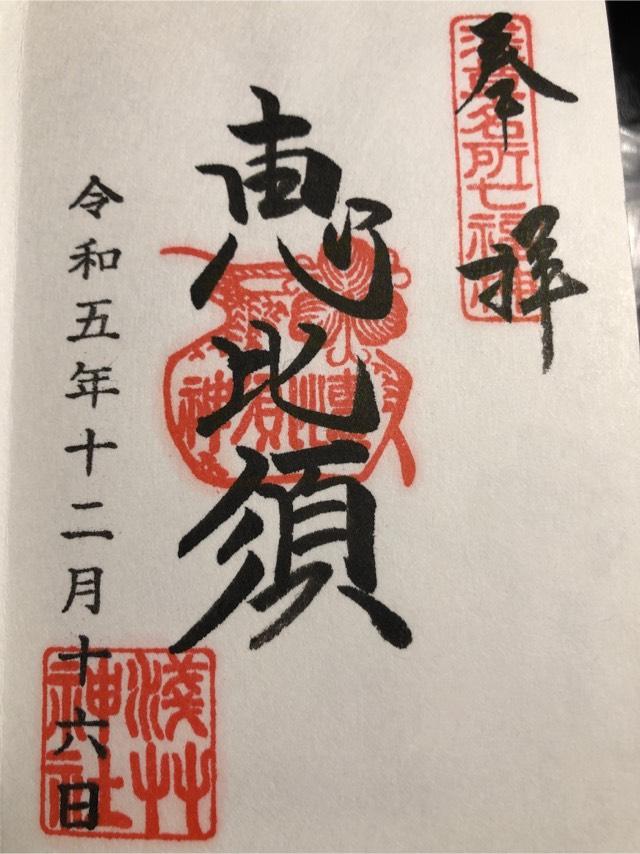 奉拝
浅草名所七福神
恵比須
令和五年十二月十六日
淺艸神社